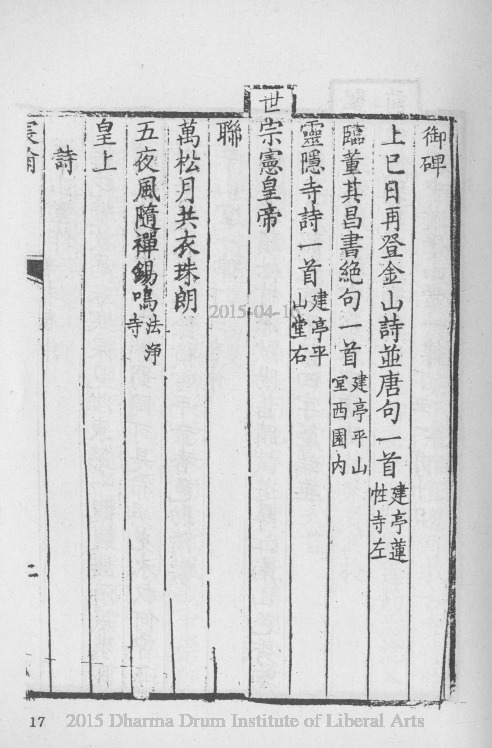 御碑
上巳日再登金山詩並唐句一首建亭蓮
性寺左
臨董其昌書絶句一首建亭平山
堂西園內
靈隱寺詩一首建亭平
山堂右
世宗憲皇帝
聯
萬松月共衣珠朗
五夜風隨禪錫鳴法淨
寺
皇上
詩
2015-04-1
17 2015 Dharma Drum Institute of Liberal Arts